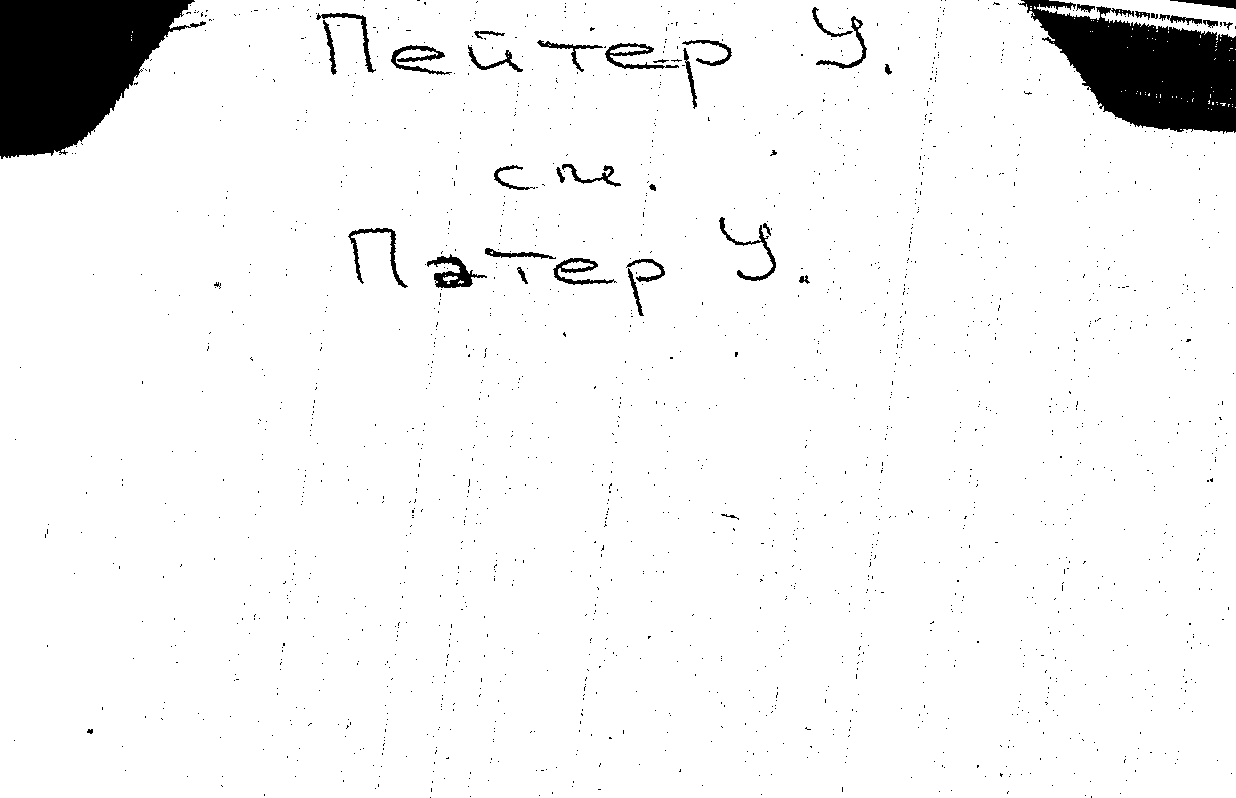 Пейтер У.
см.
Патер У.